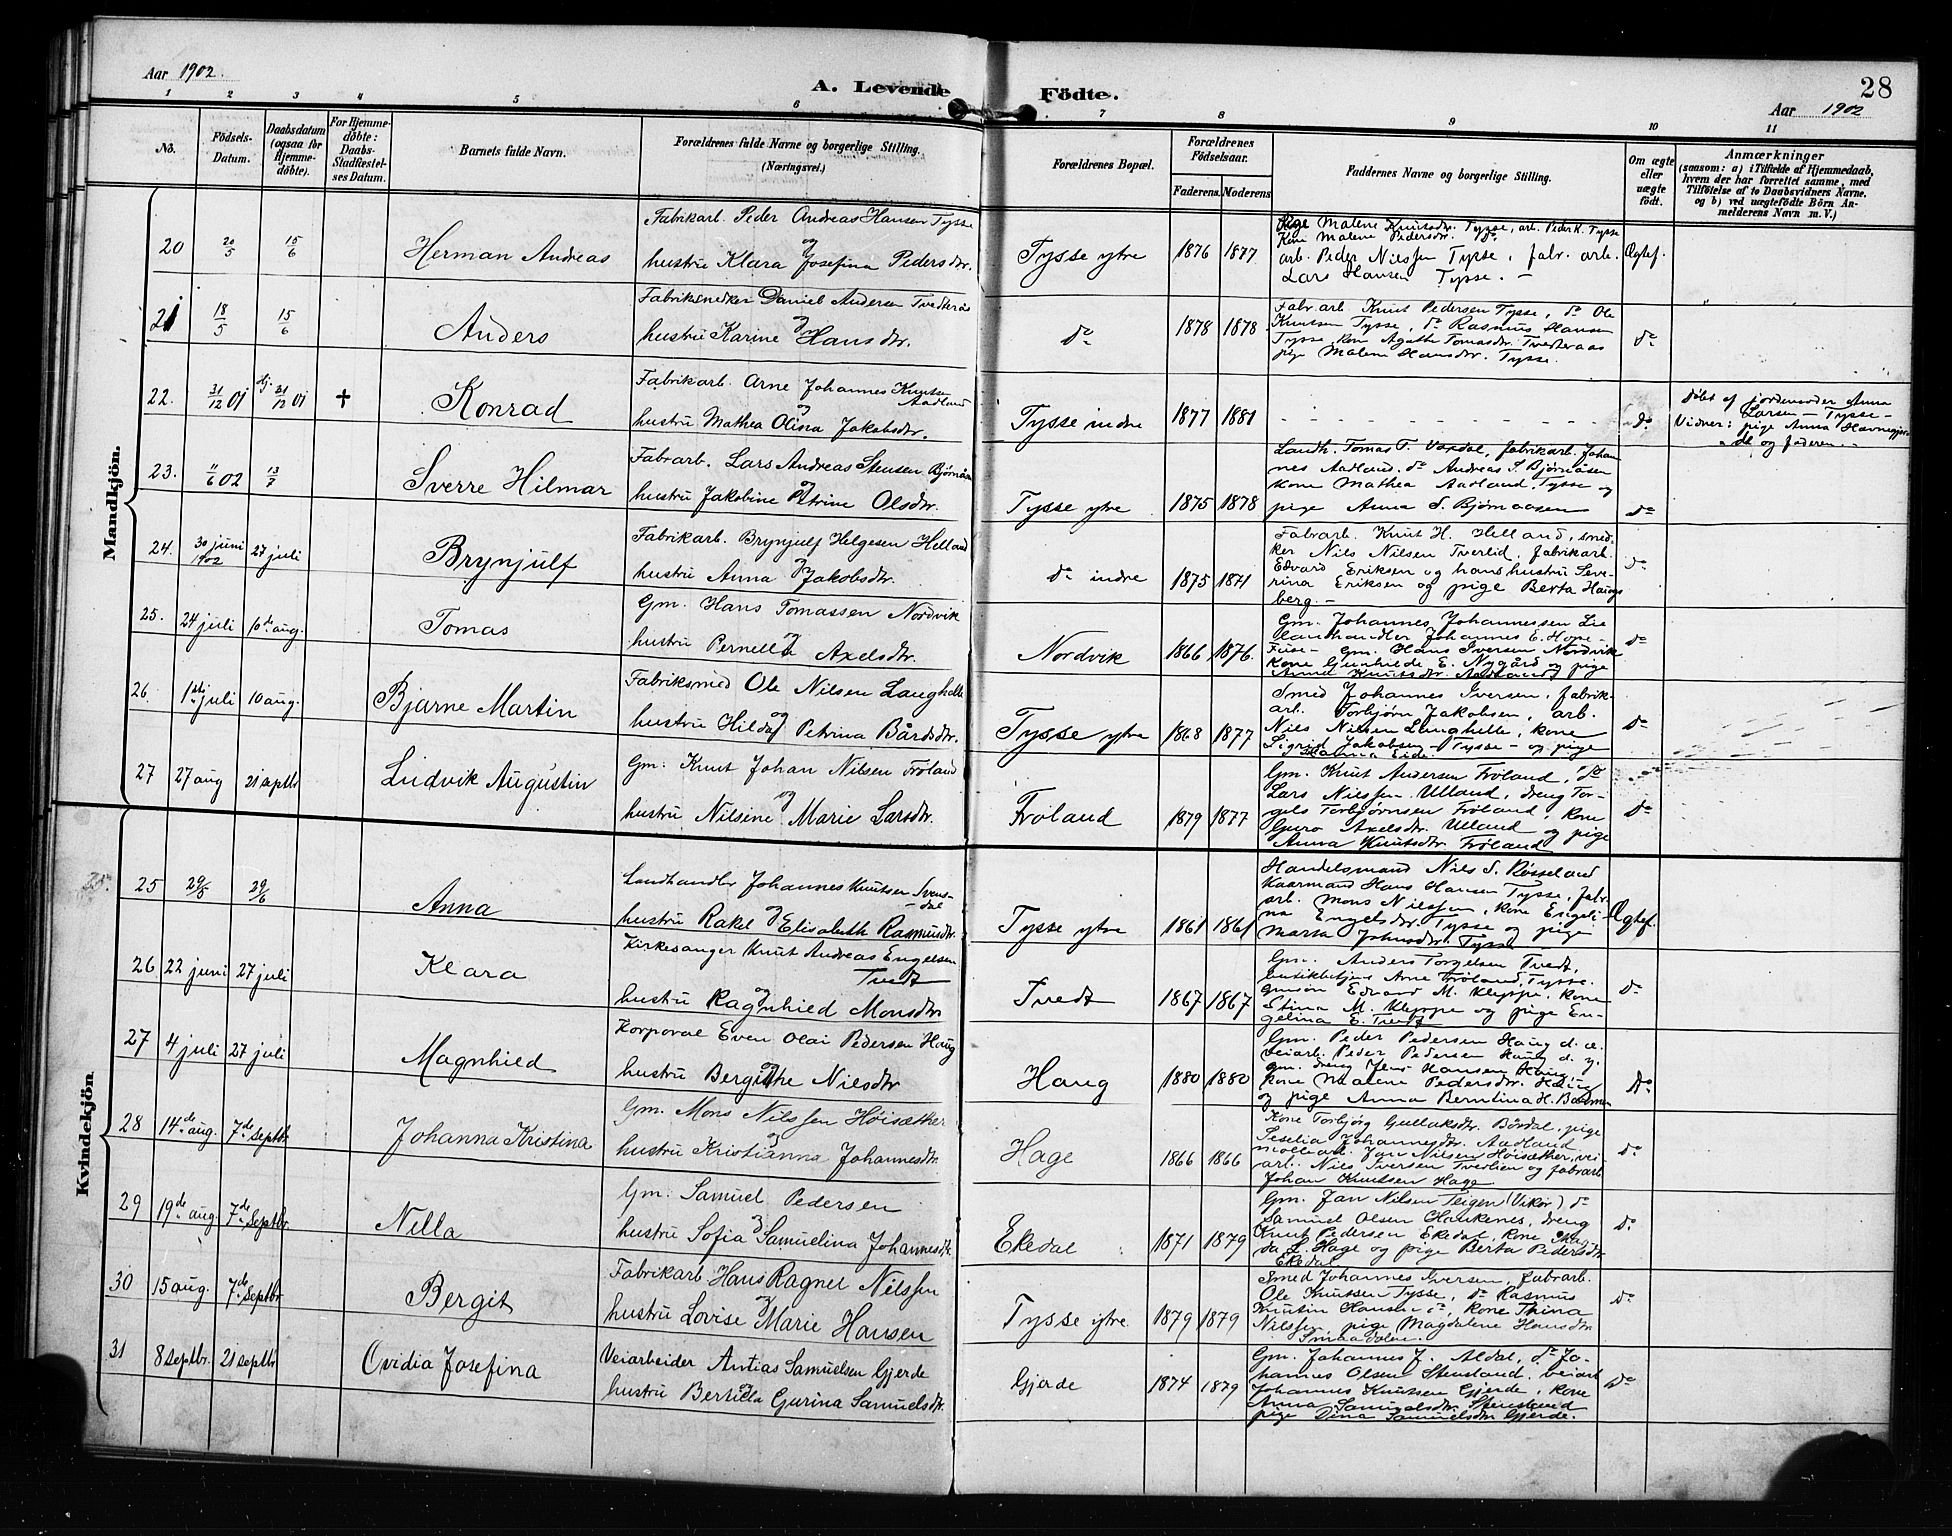 Aar 1902.
A. Levende Födte.
28
Aar 1902
1 2 3 4 5 6 7 8 9 10 11
No.
Födsels-
Datum.
Daabsdatum
(ogsaa för
Hjemme-
döbte).
For Hjemme-
döbte:
Daabs-
Stadfæstel-
ses Datum.
Barnets fulde Navn.
Forældrenes fulde Navne og borgerlige Stilling.
(Næringsvei.)
Forældrenes Bopæl.
Forældrenes
Födselsaar.
Faderens. Moderens
Faddernes Navne og borgerlige Stilling.
Om ægte
eller
uægte
födt.
Anmærkninger
(saasom: a) i Tilfælde af Hjemmedaab,
hvem der har forrettet samme, med
Tilföielse af to Daabsvidners Navne.
og b) ved uægtefödte Börn An-
melderens Navn m. V.)
Mandkjön.
20 20/5 15/6 Herman Andreas
Fabrikarb. Peder Andreas Hansen Tysse
og
hustru Klara Josefina Pedersdtr.
Tysse ytre 1876 1877
Pige Malene Knutsdtr. Tysse, arb. Peder K. Tysse
Kone Malene Pedersdtr. do
arb. Peder Nilssen Tysse, fabr. arb.
Lars Hansen Tysse. —
Ægtef.
21 18/5 15/6 Anders
Fabriksnedker Daniel Andersen Tvedterås
og
hustru Karine Hansdtr.
do 1878 1878
Fabr arb Knut Pedersen Tysse, do Ole
Knutsen Tysse, do Rasmus Hansen
Tysse, kone Agathe Tomasdtr. Tvedteraas
pige Malene Hansdtr. Tysse.
do
22. 31/12 01 Hj. 31/12 01 † Konrad
Fabrikarb. Arne Johannes Knutsen
Aadland
og
hustru Mathea Olina Jakobsdtr.
Tysse indre 1877 1881
do
Döbt af jordemoder Anna
Larsen — Tysse —
Vidner: pige Anna Havnegjer-
de og faderen.
23. 11/6 02 13/7 Sverre Hilmar
Fabrarb. Lars Andreas Stensen Bjørnåsen
og
hustru Jakobine Petrine Olsdtr.
Tysse ytre 1875 1878
Landh. Tomas T. Vaxdal, fabrikarb. Johan
nes Aadland. do Andreas S. Bjørnåsen
kone Mathea Aadland, Tysse og
pige Anna S. Bjørnaasen
do
24. 30 juni 1902 27 juli Brynjulf
Fabrikarb. Brynjulf Helgesen Helland
og
hustru Anna Jakobsdtr.
do indre 1875 1871
Fabrarb. Knut H. Helland, sned-
ker Nils Nilsen Tverlid, fabrikarb.
Edvard Eriksen og hans hustru Seve-
rina Eriksen og pige Berta Haugs
berg. —
do
25. 24 juli 10de aug. Tomas
Gm. Hans Tomassen Nordvik
og
hustru Pernella Axelsdtr.
Nordvik 1866 1876.
Gm. Johannes Johannessen Lie
Landhandler Johannes E. Hope —
Fuse — Gm. Hans Iversen Nordvik
kone Gunhilde E. Nygård og pige
Anna Knutsdtr. Aadland
do
26. 1ste juli 10 aug. Bjarne Martin
Fabriksmed Ole Nilsen Langhelle
og
hustru Hilda Petrina Bårdsdtr.
Tysse ytre 1868 1877
Smed Johannes Iversen, fabrik-
arb. Torbjørn Jakobsen, arb.
Nils Nilsen Langhelle, kone
Sigrid Jakobsen — Tysse — og pige
Eide.
do
27 27 aug 21 septbr Ludvik Augustin
Gm. Knut Johan Nilsen Frøland
og
hustru Nilsine Marie Larsdtr.
Frøland 1879 1877
Gm. Knut Andersen Frøland, do
Lars Nilssen Ulland, dreng Tor-
gils Torbjørnsen Frøland, kone
Guro Axelsdtr. Ulland og pige
Anna Knutsdtr. Frøland
do
Kvindekjön
25. 25 29/5 29/6 Anna
Landhandler Johannes Knutsen Svens-
dal
og
hustru Rakel Elisabeth Rasmusdtr.
Tysse ytre 1861 1861
Handelsmand Nils S. Røsseland
Kaarmand Hans Hansen Tysse, fabr.
arb. Mons Nilssen, kone Engeli-
na Engelsdtr. Tysse og pige
Marta Johnsdtr. Tysse
Ægtef.
26 22 juni 27 juli Klara
Kirkesanger Knut Andreas Engelsen
Tvedt
og
hustru Ragnhied Monsdtr
Tvedt 1867 1867
Gm. Anders Torgelsen Tvedt,
butikbetjent Arne Frøland, Tysse.
Gmsøn Edvard M. Kleppe, kone
Stina M. Kleppe og pige En-
gelina E. Tvedt
do
27 4 juli 27 juli Magnhied
Korporal Even Olai Pedersen Haug
og
hustru Bergithe Nilsdtr
Haug 1880 1880
Gm. Peder Pedersen Haug d. æ.
veiarb. Peder Pedersen Haug d. y.
gm. dreng Jens Hansen Haug
kone Malene Pedersdtr. Haug
og pige Anna Berntina H.
Do
28 14de aug. 7de septbr Johanna Kristina
Gm. Mons Nilssen Høisæther
og
hustru Kristianna Johannesdtr.
Hage 1866 1866
Kone Torbjørg Gullaksdtr. Børdal, pige
Seselia Johannesdtr. Aadland
møllearb. Jan Nilsen Høisæther, vei-
arb. Nils Iversen Tverlien og fabrarb
Johan Knutsen Hage
do
29 19de aug. 7de Septbr. Nilla
Gm. Samuel Pedersen
og
hustru Sofia Samuelina Johannesdtr.
Ekedal 1871 1879
Gm. Jan Nilsen Teigen (Vikør) do
Samuel Olsen Haukenes, dreng
Knut Pedersen Ekedal, kone Mag-
da L. Hage og pige Berta Pedersdtr
Ekedal
do
30 15 aug. 7de Septbr Bergit
Fabrikarb Hans Ragner Nilssen
og
hustru Lovise Marie Hansen
Tysse ytre 1879 1879
Smed Johannes Iversen, fabrarb.
Ole Knutsen Tysse, do Rasmus
Knutin Hansen do, kone Thina
Nilssen pige Magdalene Hansdtr
Smaadalen.
do
31 8 septbr. 21 septbr Ovidia Josefina
Veiarbeider Antias Samuelsen Gjerde
og
hustru Bertilla Gurina Samuelsdtr.
Gjerde 1874 1879
Gm. Johannes J. Aldal, do Jo-
hannes Olsen Stensland, veiarb
Johannes Knutsen Gjerde, kone
Anna Samuelsdtr. Stensland
pige Dina Samuelsdtr Gjerde.
do